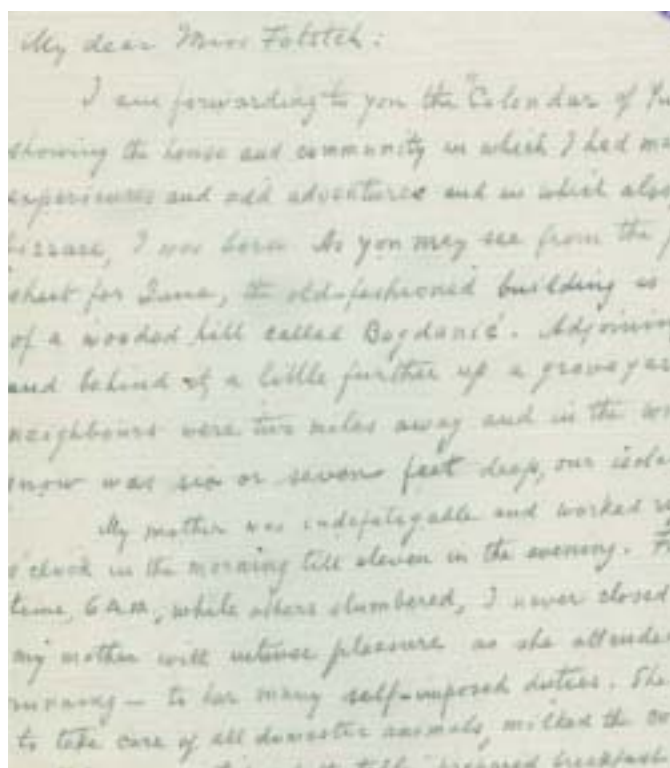 My dear Miss Fotitch:
I am forwarding to you the "Calendar of Yu
showing the house and community in which I had ma
experiences and odd adventures and in which also
bizzare, I was born. As you may see from the
sheet for June, the old-fashioned building is
of a wooded hill called Bogdanić. Adjoining
and behind it a little further up a graveyar
neighbours were two miles away and in the wi
snow was six or seven feet deep, our isola
My mother was indefatigable and worked
o'clock in the morning till eleven in the evening.
time, 6 A.M., while others slumbered, I never closed
my mother with intense pleasure as she attende
running — to her many self-imposed duties. She
to take care of all domestic animals, milked the
prepared breakfast